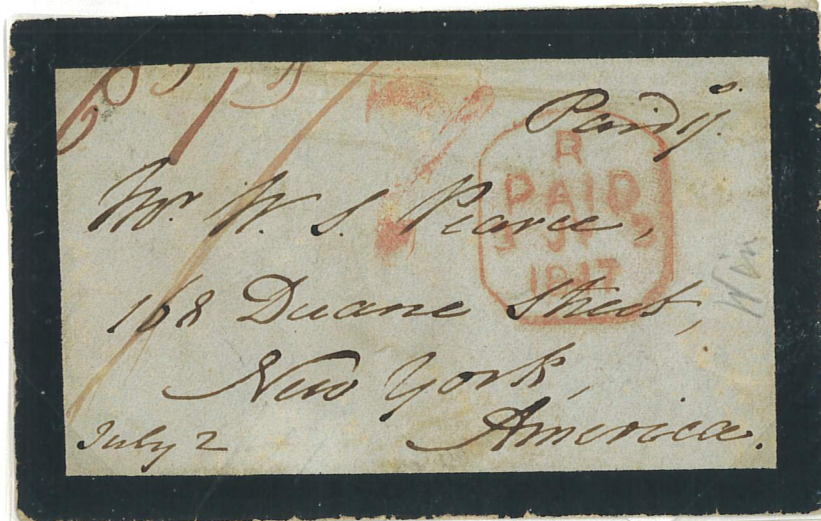 Paid
R
PAID
1847
Mr. W. S. Pearce,
168 Duane Street,
New York,
America.
July 2